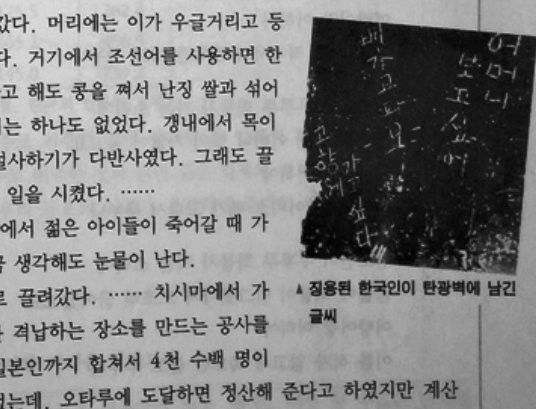 갔다. 머리에는 이가 우글거리고 등
다. 거기에서 조선어를 사용하면 한
고 해도 콩을 쪄서 난징 쌀과 섞어
는 하나도 없었다. 갱내에서 목이
설사하기가 다반사였다. 그래도 끌
일을 시켰다. ……
에서 젊은 아이들이 죽어갈 때 가
생각해도 눈물이 난다.
로 끌려갔다. …… 치시마에서 가
격납하는 장소를 만드는 공사를
일본인까지 합쳐서 4천 수백 명이
는데. 오타루에 도달하면 정산해 준다고 하였지만 계산
어머니
보고싶어
배가고파요
고향에
가고싶다
▲ 징용된 한국인이 탄광벽에 남긴
글씨